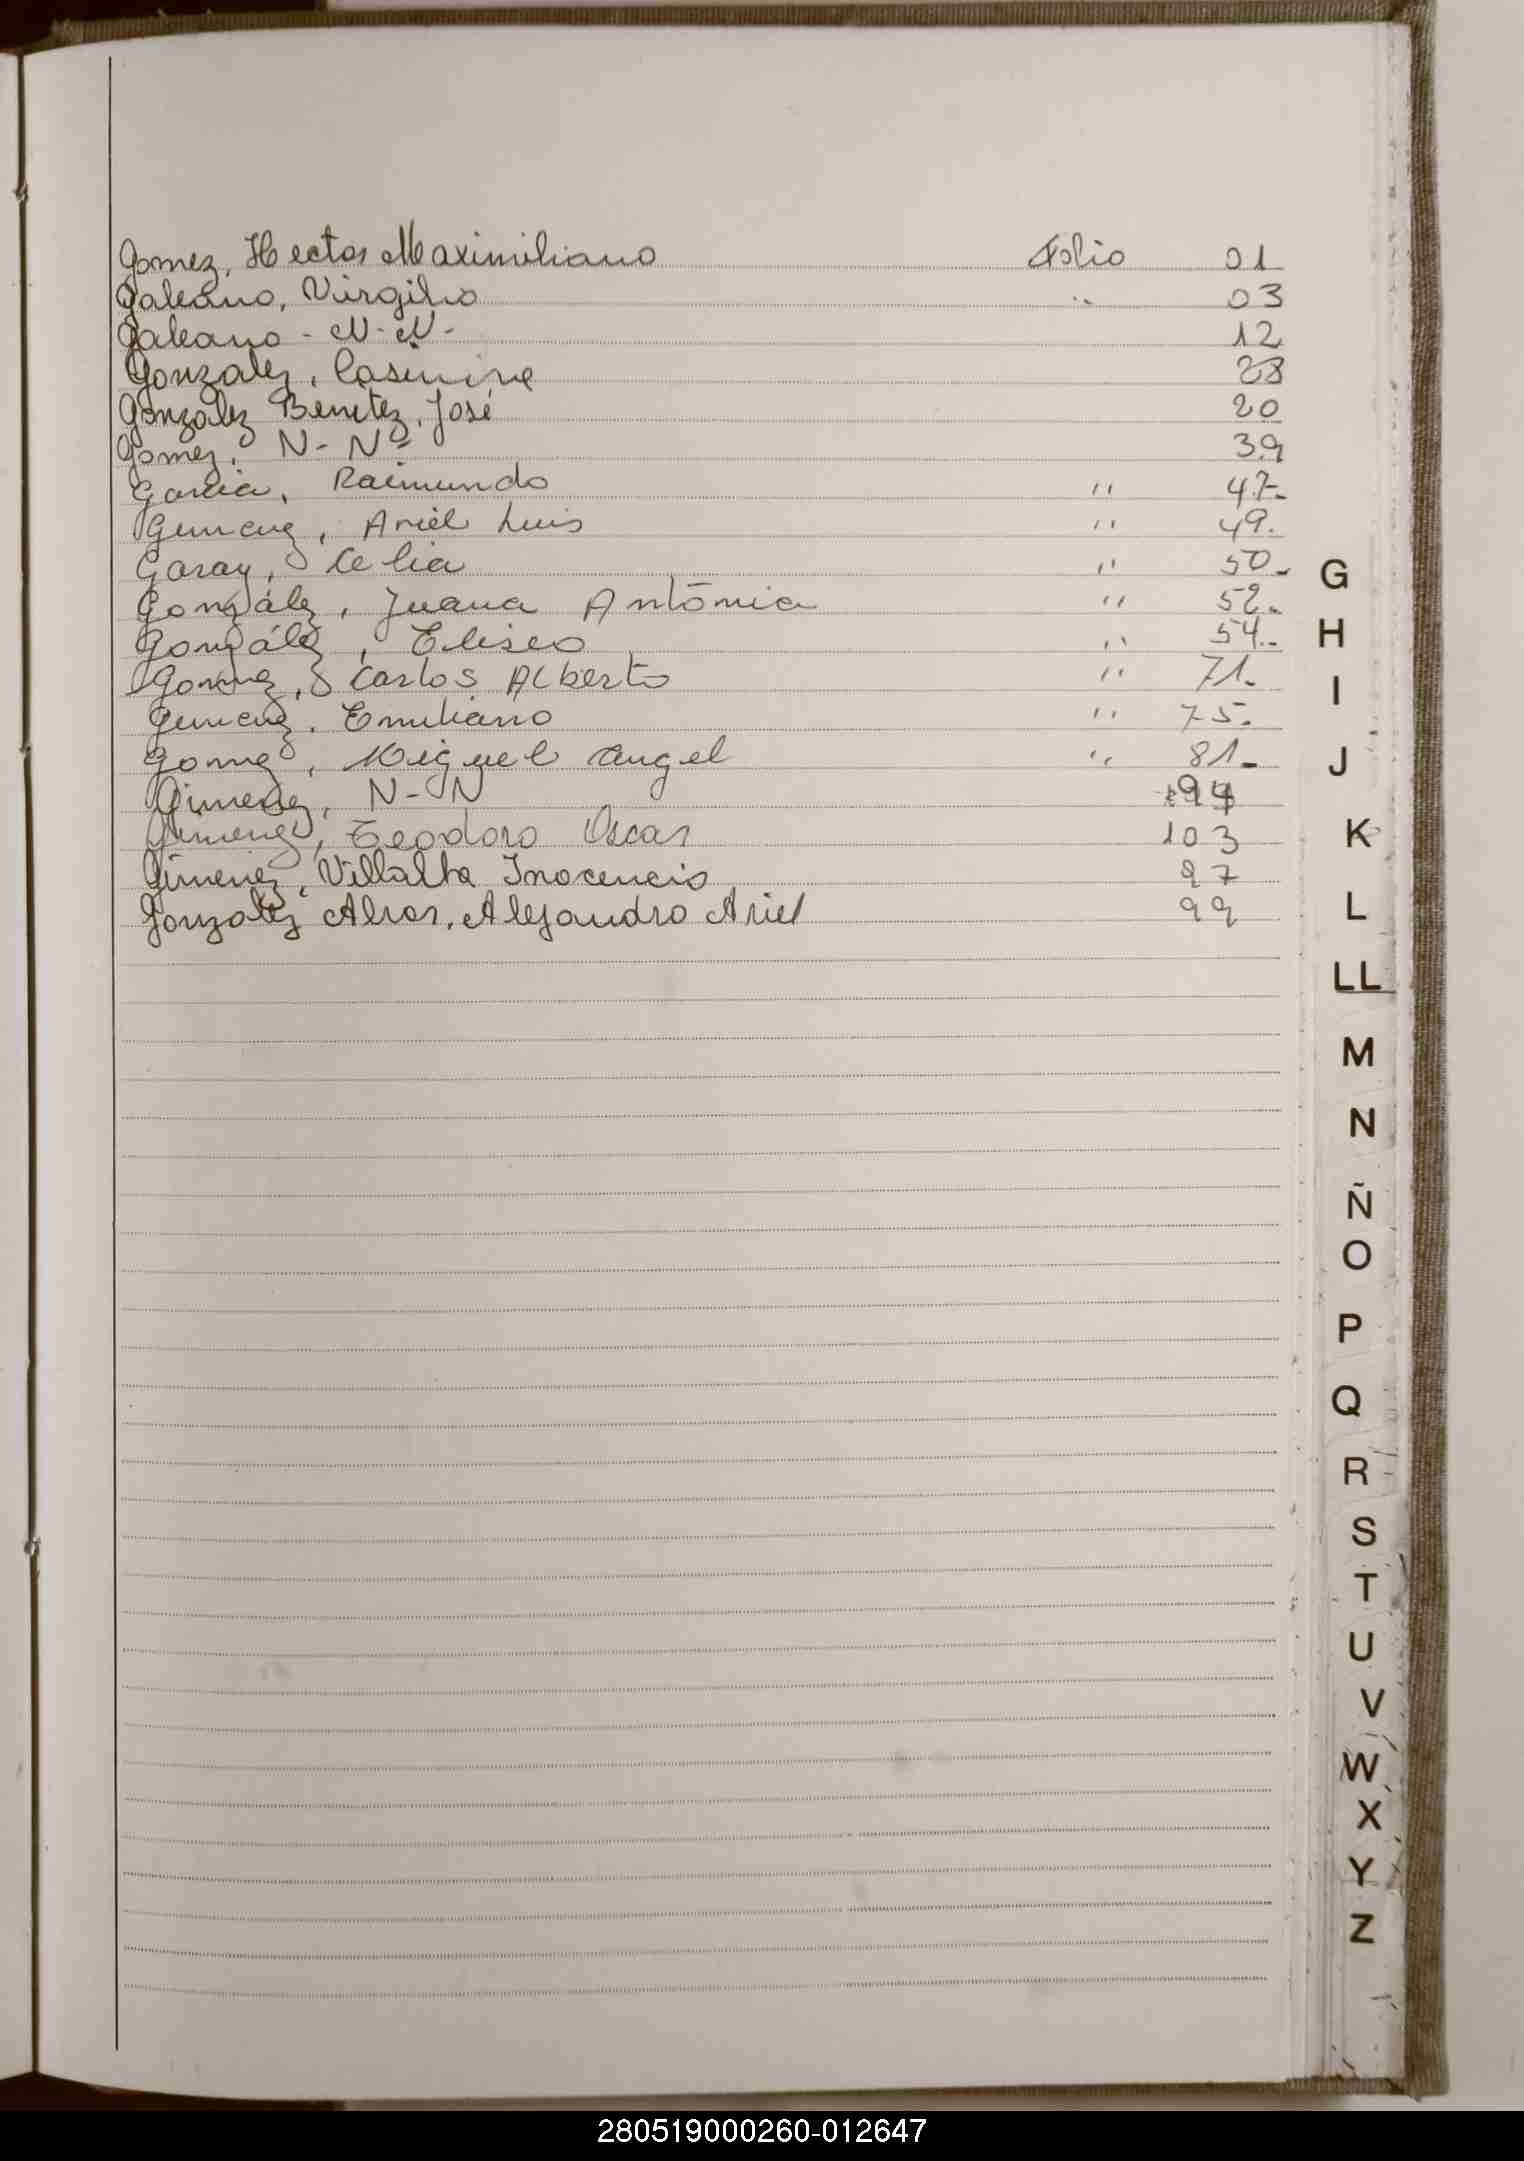 Gomez, Hector Maximiliano Folio 01
Galeano, Virgilio " 03
Galeano - N-N- 12
Gonzalez, Casimira 28
Gonzalez Benitez, José 20
Gomez, N-Nº 39
Garcia, Raimundo " 47.-
Gimenez, Ariel Luis " 49.
Garay, Celia " 50.-
González, Juana Antónia " 52.-
González, Eliseo " 54.-
Gomez, Carlos Alberto " 71.-
Gimenez, Emiliano " 75.
Gomez, Miguel Angel " 81.-
Gimenez, N-N
Gimenez, Teodoro Oscar 103
Gimenez, Villalba Inocencio 97
Gonzalez Alejandro Ariel 99
G
H
I
J
K
L
LL
M
N
Ñ
O
P
Q
R
S
T
U
V
W
X
Y
Z
280519000260-012647